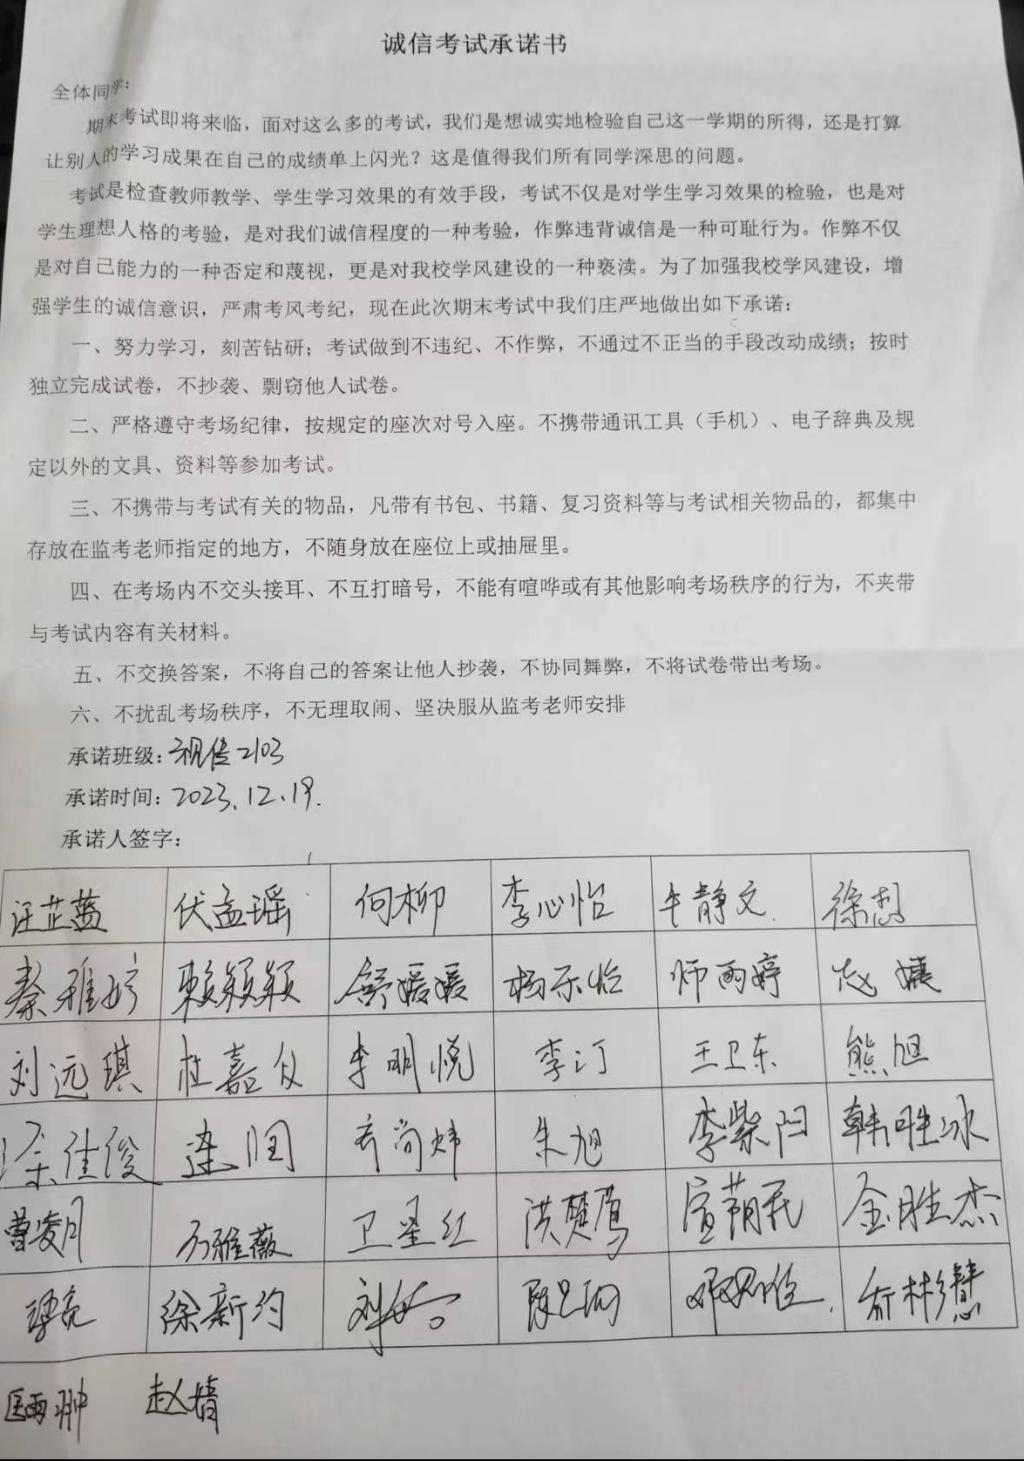 诚信考试承诺书
全体同学：
期末考试即将来临，面对这么多的考试，我们是想诚实地检验自己这一学期的所得，还是打算
让别人的学习成果在自己的成绩单上闪光？这是值得我们所有同学深思的问题。
考试是检查教师教学、学生学习效果的有效手段，考试不仅是对学生学习效果的检验，也是对
学生理想人格的考验，是对我们诚信程度的一种考验，作弊违背诚信是一种可耻行为。作弊不仅
是对自己能力的一种否定和蔑视，更是对我校学风建设的一种亵渎。为了加强我校学风建设，增
强学生的诚信意识，严肃考风考纪，现在此次期末考试中我们庄严地做出如下承诺：
一、努力学习，刻苦钻研；考试做到不违纪、不作弊，不通过不正当的手段改动成绩；按时
独立完成试卷，不抄袭、剽窃他人试卷。
二、严格遵守考场纪律，按规定的座次对号入座。不携带通讯工具（手机）、电子辞典及规
定以外的文具、资料等参加考试。
三、不携带与考试有关的物品，凡带有书包、书籍、复习资料等与考试相关物品的，都集中
存放在监考老师指定的地方，不随身放在座位上或抽屉里。
四、在考场内不交头接耳、不互打暗号，不能有喧哗或有其他影响考场秩序的行为，不夹带
与考试内容有关材料。
五、不交换答案，不将自己的答案让他人抄袭，不协同舞弊，不将试卷带出考场。
六、不扰乱考场秩序，不无理取闹、坚决服从监考老师安排
承诺班级：视传2103
承诺时间：2023.12.19.
承诺人签字：
汪芷蓝 伏孟瑶 何柳 李心怡 牛静文
秦雅婷 赖颖颖 舒媛媛 杨乐怡 师雨婷
刘远琪 杜嘉仪 李明悦 李汀 王卫东 熊旭
余佳俊 连润 乔尚炜 朱旭 李紫阳 韩胜冰
曹凌月 石雅薇 卫星红 洪楚鹰 宣萌民 金胜杰
徐新约 乔彬慧
匡雨翀 赵婧